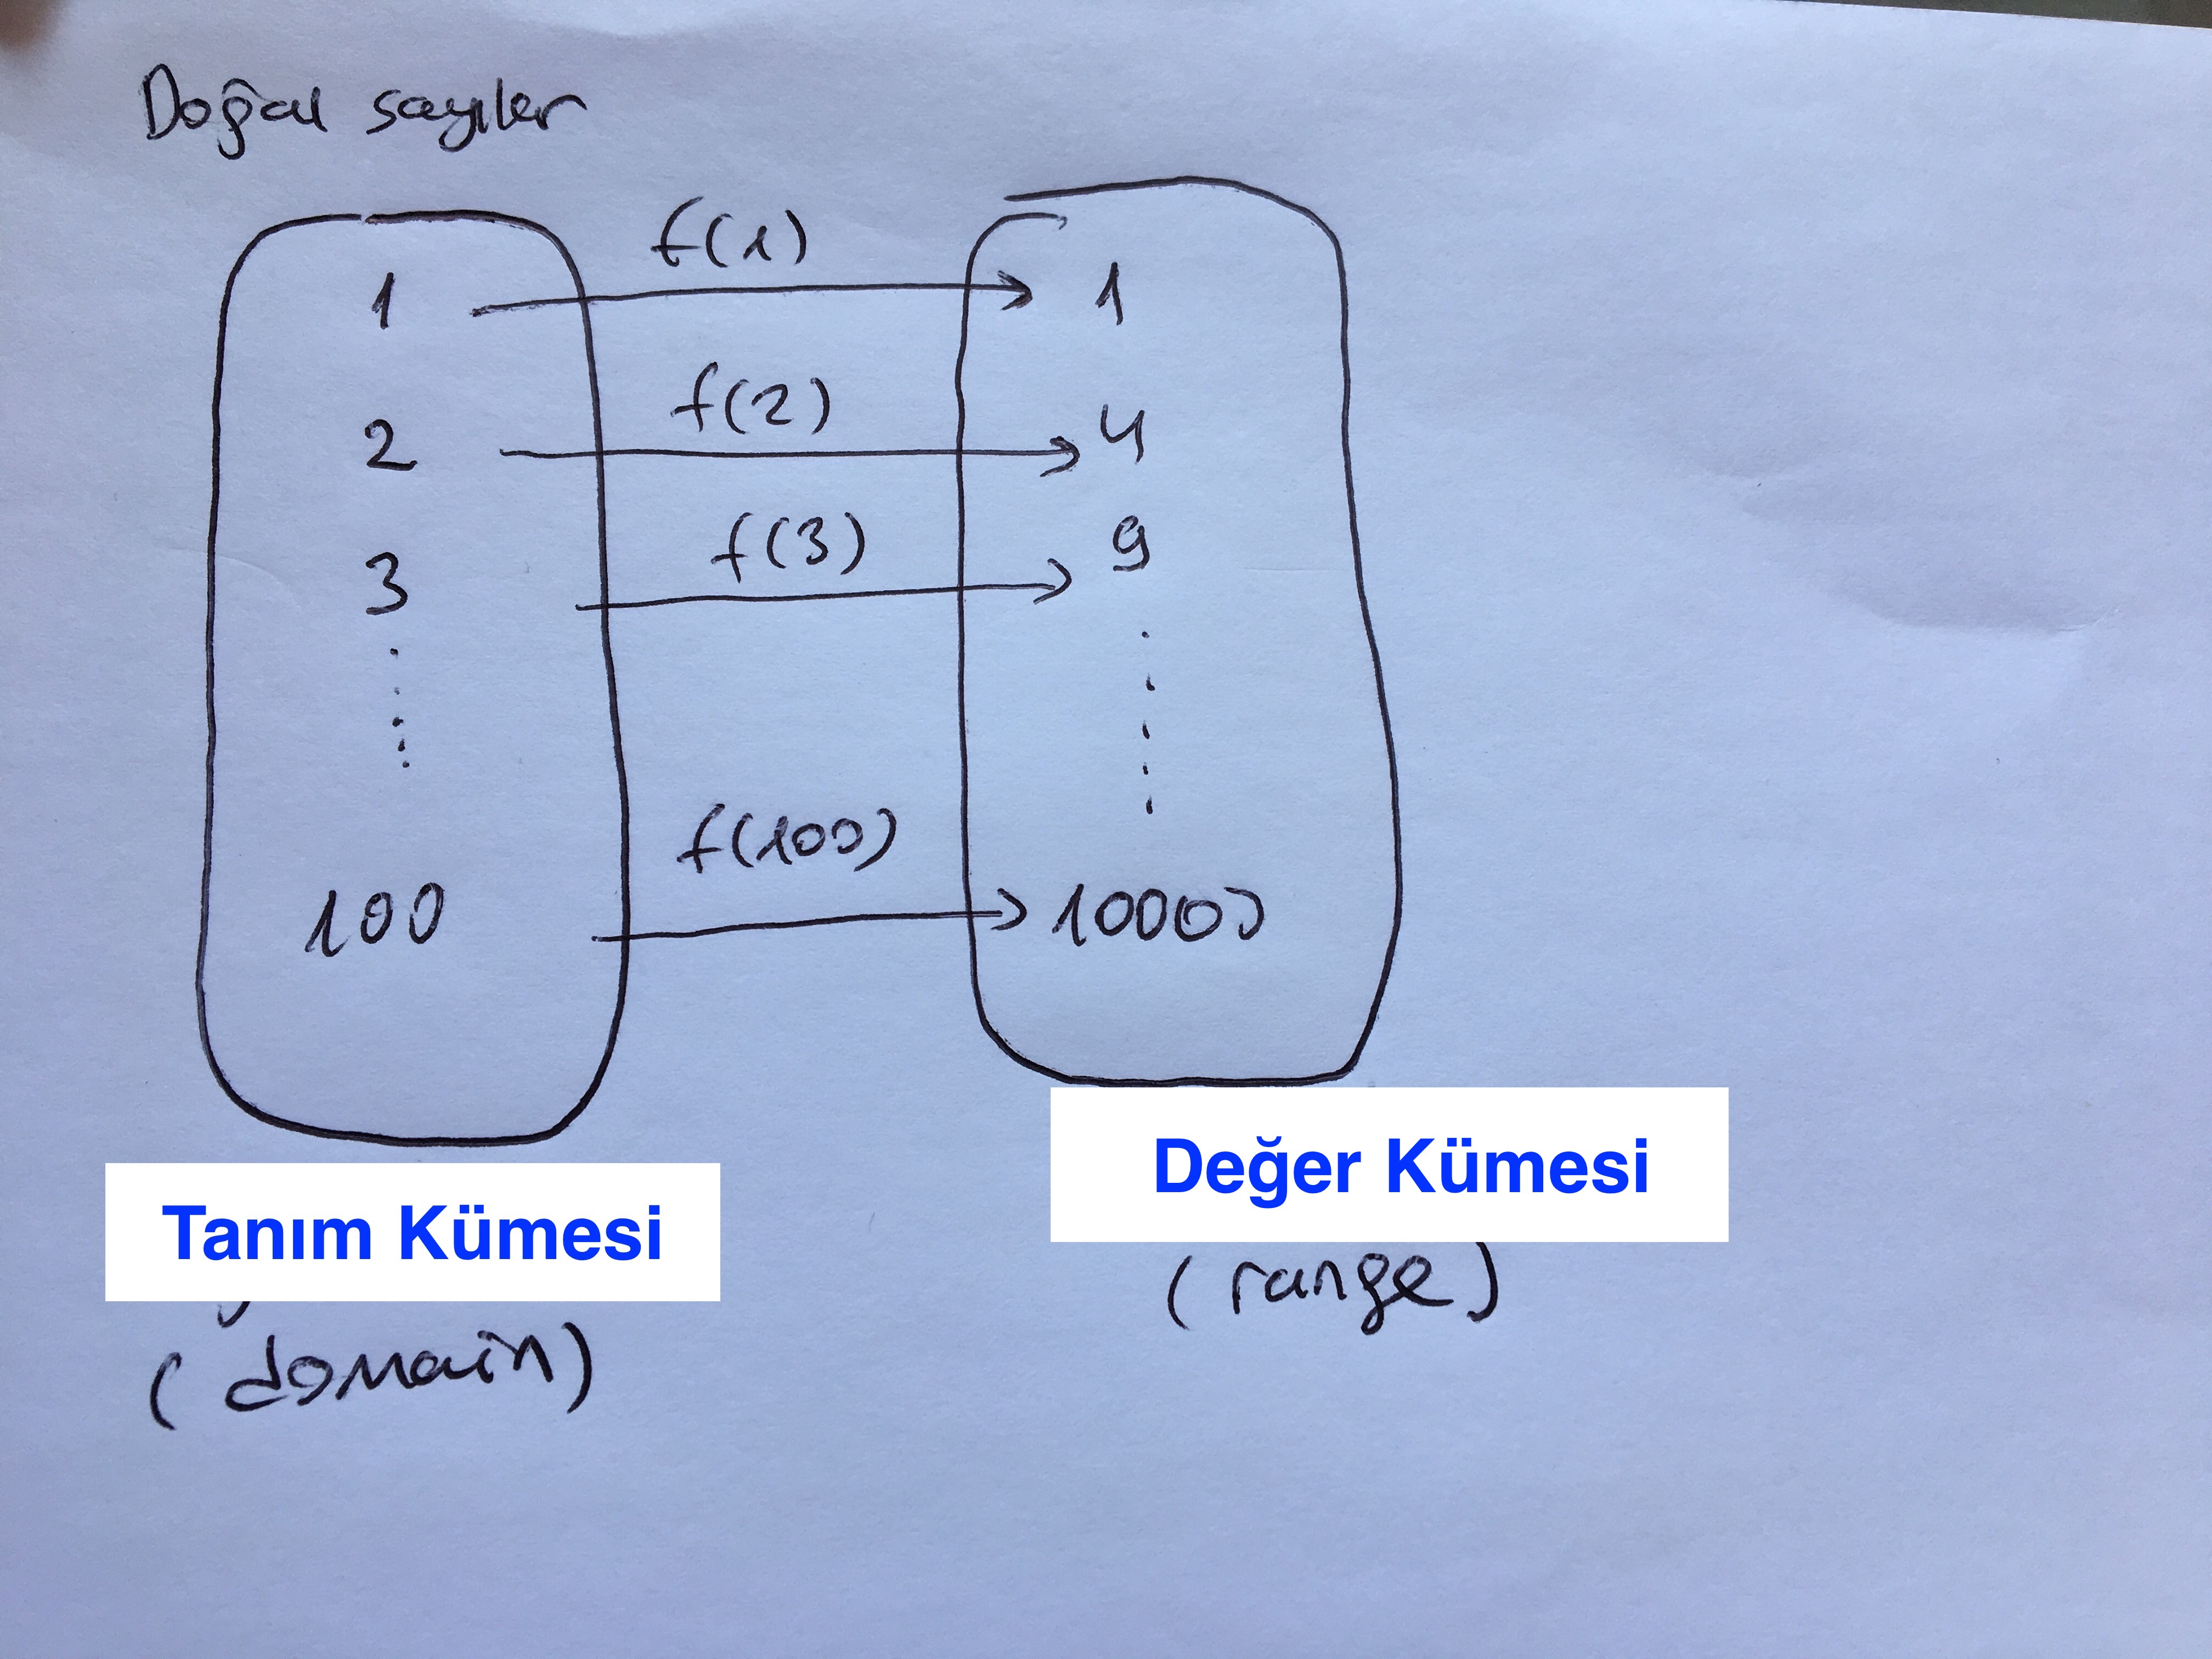 Doğal sayılar
1 f(1) 1
2 f(2) 4
3 f(3) 9
100 f(100) 10000
Tanım Kümesi
(domain)
Değer Kümesi
(range)